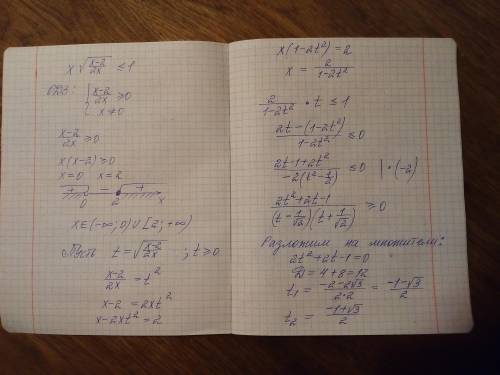 x√((x-2)/(2x)) ≤ 1
ОДЗ: { (x-2)/(2x) ≥ 0
x ≠ 0
(x-2)/(2x) ≥ 0
x(x-2) ≥ 0
x=0 x=2
+ - +
0 2 x
x∈(-∞; 0)∪[2; +∞)
Пусть t = √((x-2)/(2x)) ; t ≥ 0
(x-2)/(2x) = t²
x-2 = 2xt²
x-2xt² = 2
x(1-2t²) = 2
x = 2/(1-2t²)
2/(1-2t²) • t ≤ 1
(2t-(1-2t²))/(1-2t²) ≤ 0
(2t-1+2t²)/(-2(t²-1/2)) ≤ 0 | •(-2)
(2t²+2t-1)/((t-1/√2)(t+1/√2)) ≥ 0
Разложим на множители:
2t²+2t-1=0
D = 4+8=12
t₁ = (-2-2√3)/(2·2) = (-1-√3)/2
t₂ = (-1+√3)/2